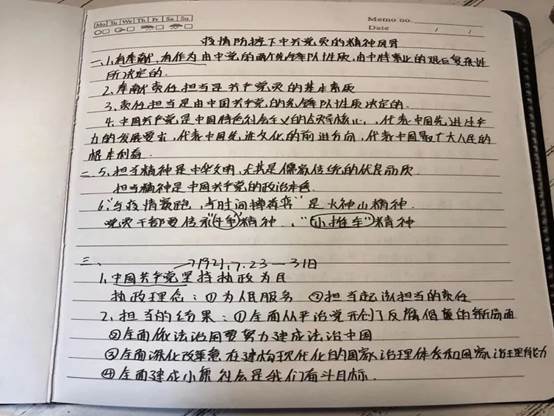 Mo Tu We Th Fr Sa Su
Memo no.
Date / /
疫情防控下中共党员的精神风骨
一、1.有奉献、有作为 由中党的 先锋队性质,由中特事业的艰巨复杂性
所决定的.
2. 奉献责任担当是共产党员的基本素质
3. 责任担当是由中国共产党的先锋队性质决定的.
4. 中国共产党是中国特色社会主义的领导核心,代表中国先进生产
力的发展要求,代表中国先进文化的前进方向,代表中国最广大人民的
根本利益.
二、5. 担当精神是中华文明,尤其是儒家传统的优良品质.
担当精神是中国共产党的政治本色.
6. “与疫情赛跑,与时间搏 ”是火神山精神.
党员干部要传承“牛车”精神、“小推车”精神
三、 →1921.7.23—31日
1. 中国共产党坚持执政为民
执政理念:①为人民服务 ②担当起该担当的责任
2. 担当的结果:①全面从严治党开创了反腐倡廉的新局面
②全面依法治国要努力建成法治中国
③全面深化改革意在建构现代化的国家治理体系和国家治理能力
④全面建成小康社会是我们奋斗目标.